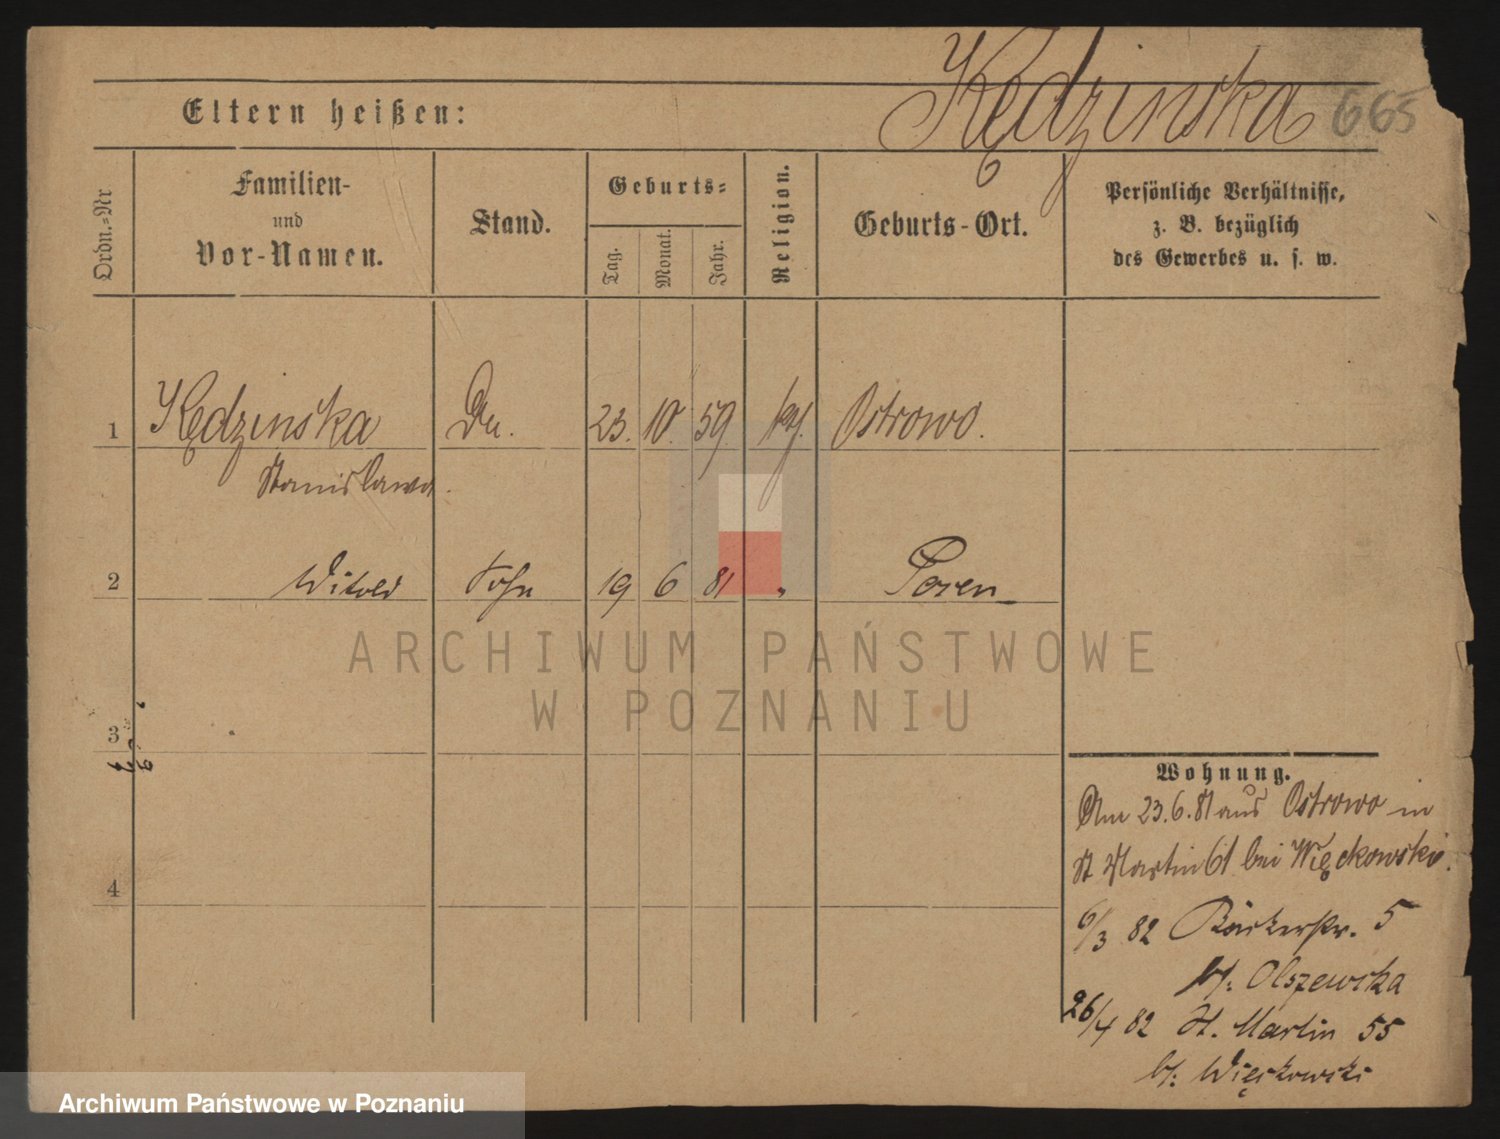 Kędzinska 665
Eltern heißen:
Ordn.=Nr
Familien-
und
Vor-Namen.
Stand.
Geburts=
Tag.
Monat.
Jahr.
Religion.
Geburts-Ort.
Persönliche Verhältnisse,
z. B. bezüglich
des Gewerbes u. s. w.
1 Kędzinska 23. 10. 59 Ostrowo.
Stanislawa.
2 Witold Sohn 19 6 81 " Posen
ARCHIWUM PAŃSTWOWE
W POZNANIU
3
4
Wohnung.
Am 23.6.81 aus Ostrowo in
St Martin 61 bei Więckowski.
6/3 82 Bäckerstr. 5
b/: Olszewska
26/4 82 St. Martin 55
b/: Więckowski
Archiwum Państwowe w Poznaniu